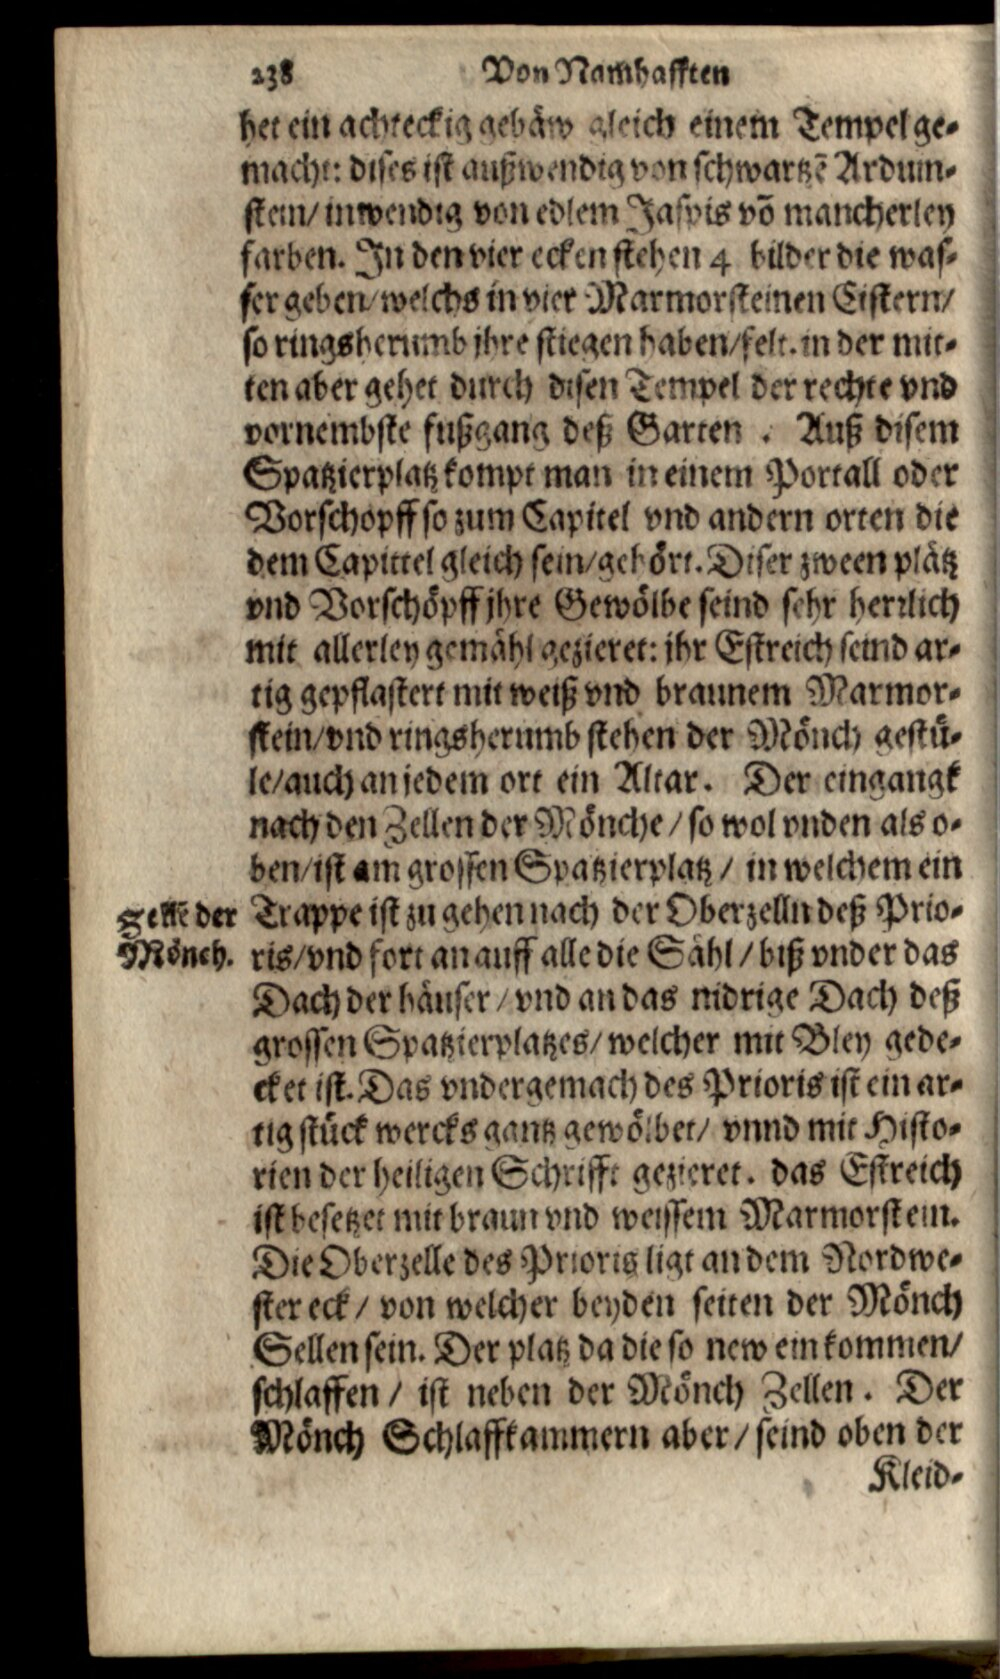 238 Von Namhafften
het ein achteckig gebäw gleich einem Tempel ge-
macht: dises ist außwendig von schwartzē Arduin-
stein/ inwendig von edlem Jaspis vō mancherley
farben. In den vier ecken stehen 4 bilder die was-
ser geben/ welchs in vier Marmorsteinen Cistern/
so ringsherumb jhre stiegen haben/ felt. in der mit-
ten aber gehet durch disen Tempel der rechte vnd
vornembste fußgang deß Garten . Auß disem
Spatzierplatz kompt man in einem Portall oder
Vorschopff so zum Capitel vnd andern orten die
dem Capittel gleich sein/ gehört. Diser zween plätz
vnd Vorschöpff jhre Gewölbe seind sehr herrlich
mit allerley gemähl gezieret: ihr Estreich seind ar-
tig gepflastert mit weiß vnd braunem Marmor-
stein/ vnd ringsherumb stehen der Mönch gestü-
le/ auch an jedem ort ein Altar. Der eingangk
nach den Zellen der Mönche / so wol vnden als o-
ben/ ist am grossen Spatzierplatz / in welchem ein
Trappe ist zu gehen nach der Oberzelln deß Prio-
der
Mönch.
ris/ vnd fort an auff alle die Sähl / biß vnder das
Dach der häuser / vnd an das nidrige Dach deß
grossen Spatzierplatzes/ welcher mit Bley gede-
cket ist. Das vndergemach des Prioris ist ein ar-
tig stück wercks gantz gewölbet/ vnnd mit Histo-
rien der heiligen Schrifft gezieret. das Estreich
ist besetzet mit braun vnd weissem Marmorstein.
Die Oberzelle des Prioris ligt an dem Nordwe-
ster eck / von welcher beyden seiten der Mönch
Sellen sein. Der platz da die so new ein kommen/
schlaffen / ist neben der Mönch Zellen . Der
Mönch Schlaffkammern aber / seind oben der
Kleid-